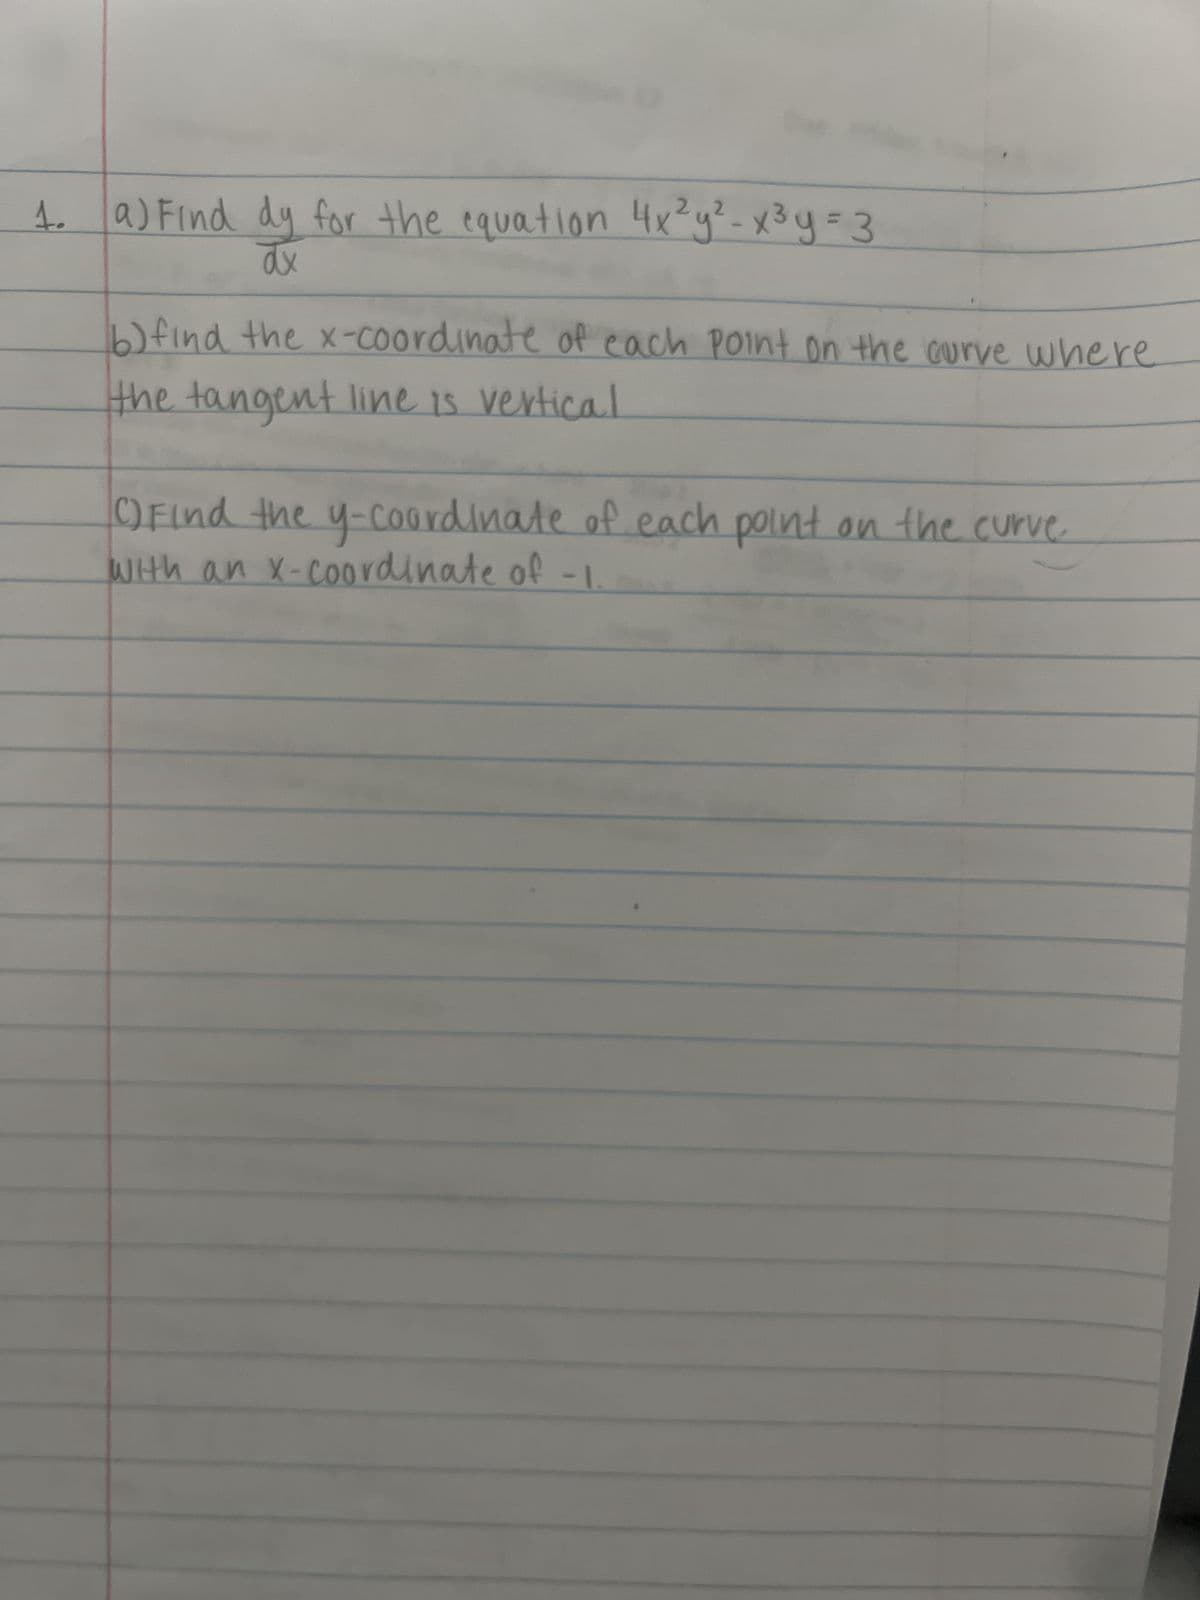 1. a) Find dy/dx for the equation 4x²y² - x³y = 3
b) find the x-coordinate of each point on the curve where
the tangent line is vertical
C) Find the y-coordinate of each point on the curve.
with an x-coordinate of -1.